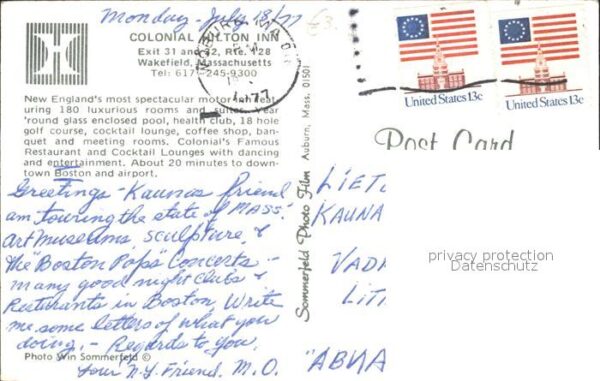 Monday - July 18/77
COLONIAL HILTON INN
Exit 31 and 32, Rte. 128
Wakefield, Massachusetts
Tel: 617-245-9300
New England's most spectacular motor inn feat-
uring 180 luxurious rooms and suites. Year
'round glass enclosed pool, health club, 18 hole
golf course, cocktail lounge, coffee shop, ban-
quet and meeting rooms. Colonial's Famous
Restaurant and Cocktail Lounges with dancing
and entertainment. About 20 minutes to down-
town Boston and airport.
Greetings - Kaunas friend
am touring the state of MASS.
art museums, sculpture, &
the "Boston Pops" Concerts -
many good night clubs &
Resturants in Boston, Write
me some letters of what you
doing. - Regards to you.
Your N.Y. Friend. M.O.
Photo Win Sommerfeld ©
Sommerfeld Photo Film Auburn, Mass. 01501
1977
United States 13c
United States 13c
Post Card
LIET
KAUNA
VADA
LIT
"ABNA
privacy protection
Datenschutz